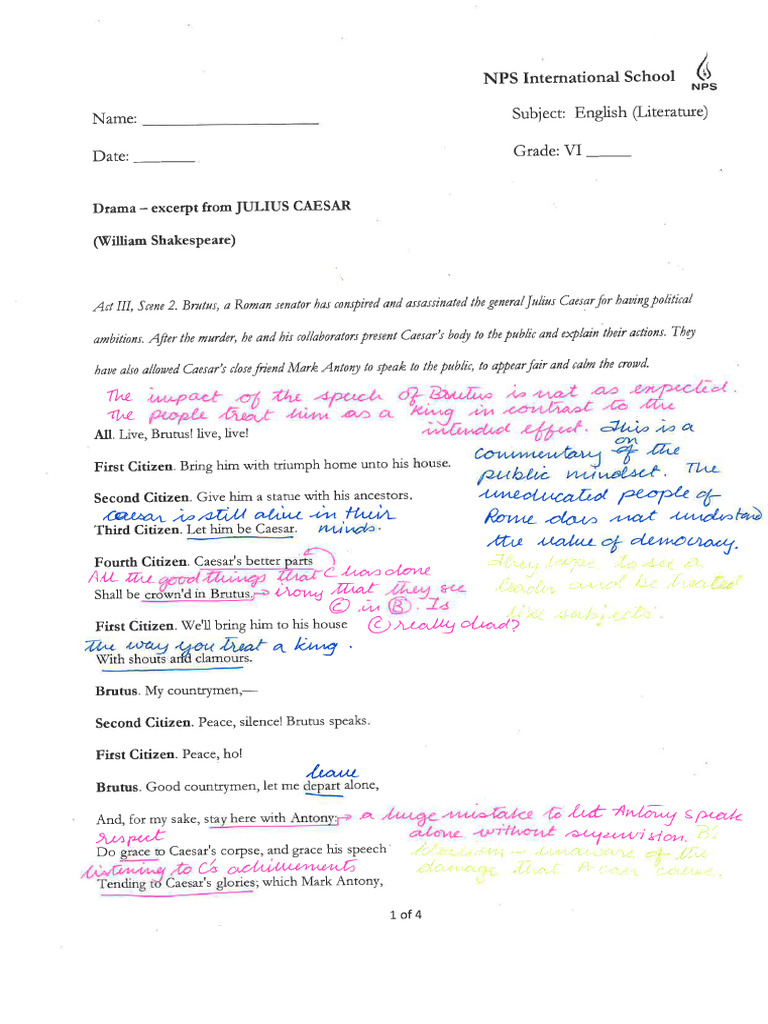 NPS International School
NPS
Name: ____________________
Subject: English (Literature)
Date: ________
Grade: VI _____
Drama – excerpt from JULIUS CAESAR
(William Shakespeare)
Act III, Scene 2. Brutus, a Roman senator has conspired and assassinated the general Julius Caesar for having political
ambitions. After the murder, he and his collaborators present Caesar's body to the public and explain their actions. They
have also allowed Caesar's close friend Mark Antony to speak to the public, to appear fair and calm the crowd.
The impact of the speech of Brutus is not as expected.
The people treat him as a king in contrast to the
intended effect. This is a
All. Live, Brutus! live, live!
commentary on of the
First Citizen. Bring him with triumph home unto his house.
public mindset. The
Second Citizen. Give him a statue with his ancestors.
uneducated people of
Caesar is still alive in their
Rome does not understand
Third Citizen. Let him be Caesar. minds.
the value of democracy.
Fourth Citizen. Caesar's better parts
They hope to see a
All the good things that C has done
leader and be treated
Shall be crown'd in Brutus. → irony that they see
C in B. Is
like subjects.
First Citizen. We'll bring him to his house
C really dead?
the way you treat a king.
With shouts and clamours.
Brutus. My countrymen,—
Second Citizen. Peace, silence! Brutus speaks.
First Citizen. Peace, ho!
leave
Brutus. Good countrymen, let me depart alone,
And, for my sake, stay here with Antony: → a huge mistake to let Antony speak
alone without supervision. B's
respect
Do grace to Caesar's corpse, and grace his speech
unaware of the
listening to C's achievements
damage that A can cause.
Tending to Caesar's glories; which Mark Antony,
1 of 4